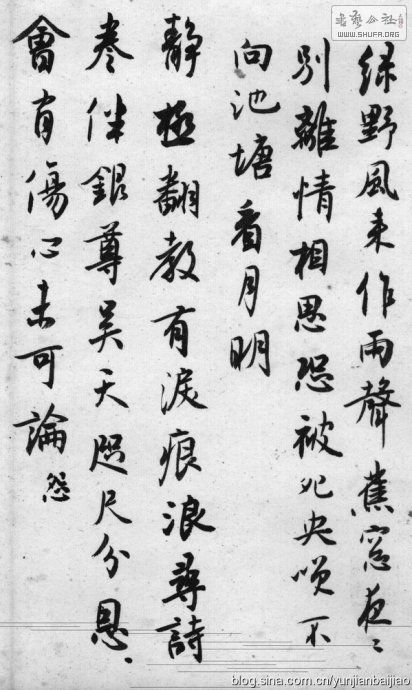 綠野風來作雨聲蕉窓夜〻
別離情相思恐被夗央咲不
向池塘看月明
靜極翻教有淚痕浪尋詩
卷伴銀尊吴天咫尺分恩、
會有傷心未可論怨
書藝公社
WWW.SHUFA.ORG
blog.sina.com.cn/yunjianbaijiao